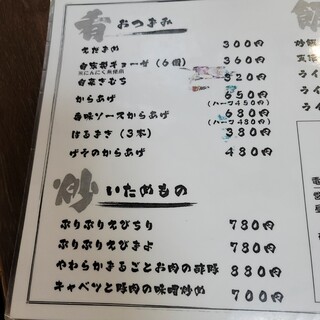 肴 おつまみ
えだまめ 300円
自家製ギョーザ(6個) 360円
※にんにく無使用
白菜きむち 320円
からあげ 650円
(ハーフ450円)
旨味ソースからあげ 680円
(ハーフ480円)
はるまき(3本) 380円
げそのからあげ 480円
炒 いためもの
ぷりぷりえびちり 780円
ぷりぷりえびまよ 780円
やわらかまるごとお肉の酢豚 880円
キャベツと豚肉の味噌炒め 700円
飯
炒飯
天津
ライ
ライ